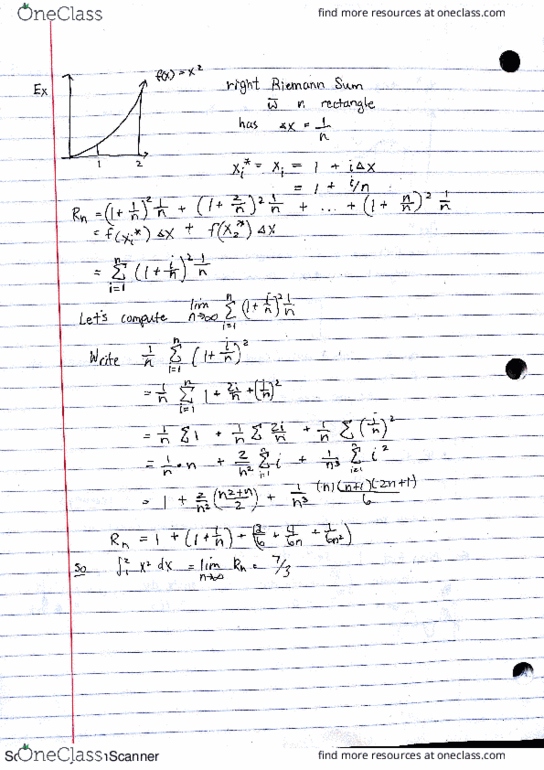 OneClass
find more resources at oneclass.com
Ex
f(x) = x²
1 2
right Riemann Sum
w̄ n rectangle
has Δx = 1/n
xᵢ* = xᵢ = 1 + iΔx
= 1 + i/n
Rₙ = (1+1/n)² 1/n + (1+2/n)² 1/n + ... + (1+n/n)² 1/n
= f(x₁*) Δx + f(x₂*) Δx
= Σⁿᵢ₌₁ (1+i/n)² 1/n
Let's compute lim n→∞ Σⁿᵢ₌₁ (1+i/n)² 1/n
Write 1/n Σⁿᵢ₌₁ (1+i/n)²
= 1/n Σⁿᵢ₌₁ 1 + 2i/n + (i/n)²
= 1/n Σ1 + 1/n Σ 2i/n + 1/n Σ (i/n)²
= 1/n • n + 2/n² Σⁿᵢ₌₁ i + 1/n³ Σⁿᵢ₌₁ i²
= 1 + 2/n² (n²+n/2) + 1/n³ (n)(n+1)(2n+1)/6
Rₙ = 1 + (1+1/n) + (2/6 + 4/6n + 1/6n²)
So ∫₁² x² dx = lim n→∞ Rₙ = 7/3
OneClass
Scanner
find more resources at oneclass.com